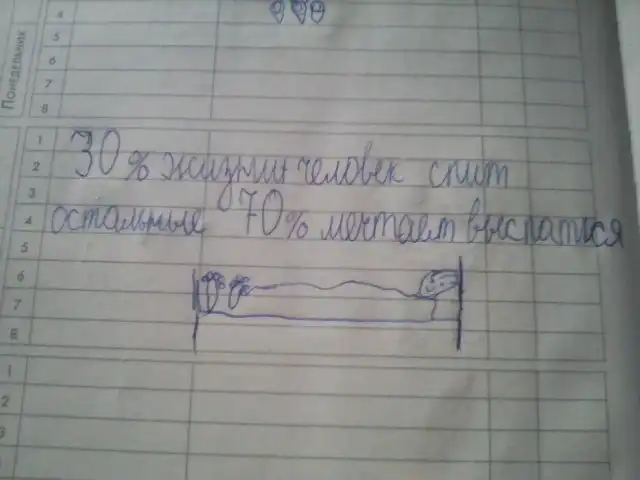 Понедельник
4
5
6
7
8
1
2
3
4
5
6
7
8
1
2
3
30% жизни человек спит
остальные 70% мечтает выспаться